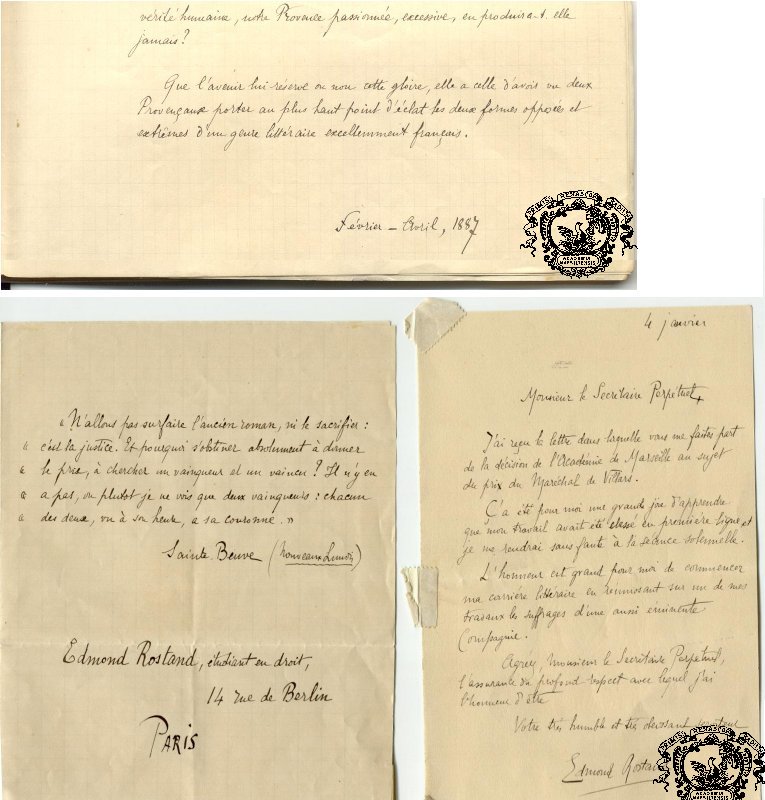 vérité humaine, notre Provence passionnée, excessive, en produira-t-elle
jamais?
Que l'avenir lui réserve ou non cette gloire, elle a celle d'avoir vu deux
Provençaux porter au plus haut point d'éclat les deux formes opposées et
extrêmes d'un genre littéraire excellemment français.
Février - Avril, 1887
PRIMIS RENASCOR
ACADEMIA
MASSILIENSIS
« N'allons pas surfaire l'ancien roman, ni le sacrifier :
« c'est la justice. Et pourquoi s'obstiner absolument à donner
« le prix, à chercher un vainqueur et un vaincu ? Il n'y en
« a pas, ou plutôt je ne vois que deux vainqueurs : chacun
« des deux, vu à son heure, a sa couronne. »
Sainte Beuve (Nouveaux Lundis)
Edmond Rostand, étudiant en droit,
14 rue de Berlin
PARIS
4 janvier
Monsieur le Secrétaire Perpétuel,
J'ai reçu la lettre dans laquelle vous me faites part
de la décision de l'Académie de Marseille au sujet
du prix du Maréchal de Villars.
Ç'a été pour moi une grande joie d'apprendre
que mon travail avait été classé en première ligne, et
je me rendrai sans faute à la séance solennelle.
L'honneur est grand pour moi de commencer
ma carrière littéraire en réunissant sur un de mes
travaux les suffrages d'une aussi éminente
Compagnie.
Agréez, Monsieur le Secrétaire Perpétuel,
l'assurance du profond respect avec lequel j'ai
l'honneur d'être
Votre très humble et très dévoué serviteur
Edmond Rostand
ACADEMIA
MASSILIENSIS